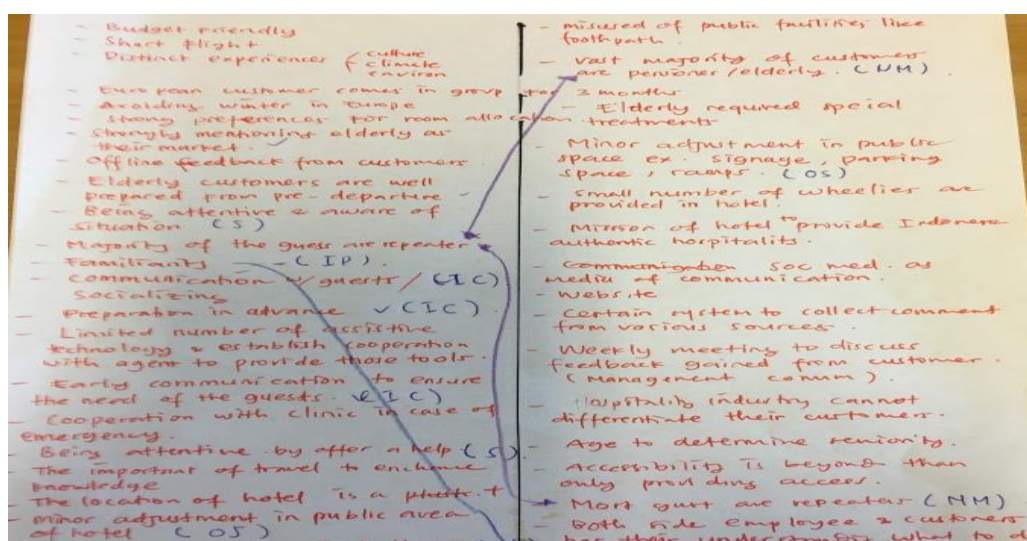 - Budget Friendly
- Short flight
- Distinct experiences { culture
climate
environ
- European customer comes in group for 3 months
- Avoiding winter in Europe
- Strong preferences for room allocation
- Strongly mentioning elderly as
their market. ✓
- Offline feedback from customers.
- Elderly customers are well
prepared from pre-departure
- Being attentive & aware of
situation (S)
- Majority of the guess are repeater
- Familiarity - (IP).
- Communication w/ guests / (IC)
Socializing
- Preparation in advance ✓ (IC).
- Limited number of assistive
technology & establish cooperation
with agent to provide those tools.
- Early communication to ensure
the need of the guests. (IC)
- Cooperation with clinic in case of
emergency.
- Being attentive by offer a help (S)
- The important of travel to enhance
knowledge
- The location of hotel is a
- minor adjustment in public area
of hotel (OS)
- misused of public facilities like
footpath.
- Vast majority of customers
are pensioner/elderly. (NM)
- Elderly required special
treatments
- Minor adjustment in public
space ex. signage, parking
space, ramps. (OS)
- Small number of wheelies are
provided in hotel.
- Mission of hotel to provide Indonesia
authentic hospitality.
- Communication Soc med. as
media of communication.
- Website
- Certain system to collect comment
from various sources.
- Weekly meeting to discuss
feedback gained from customer.
(Management comm).
- Hospitality industry cannot
differentiate their customers.
- Age to determine seniority.
- Accessibility is beyond than
only providing access.
- Most are repeaters (NM)
- Both side employee & customers
their what to d